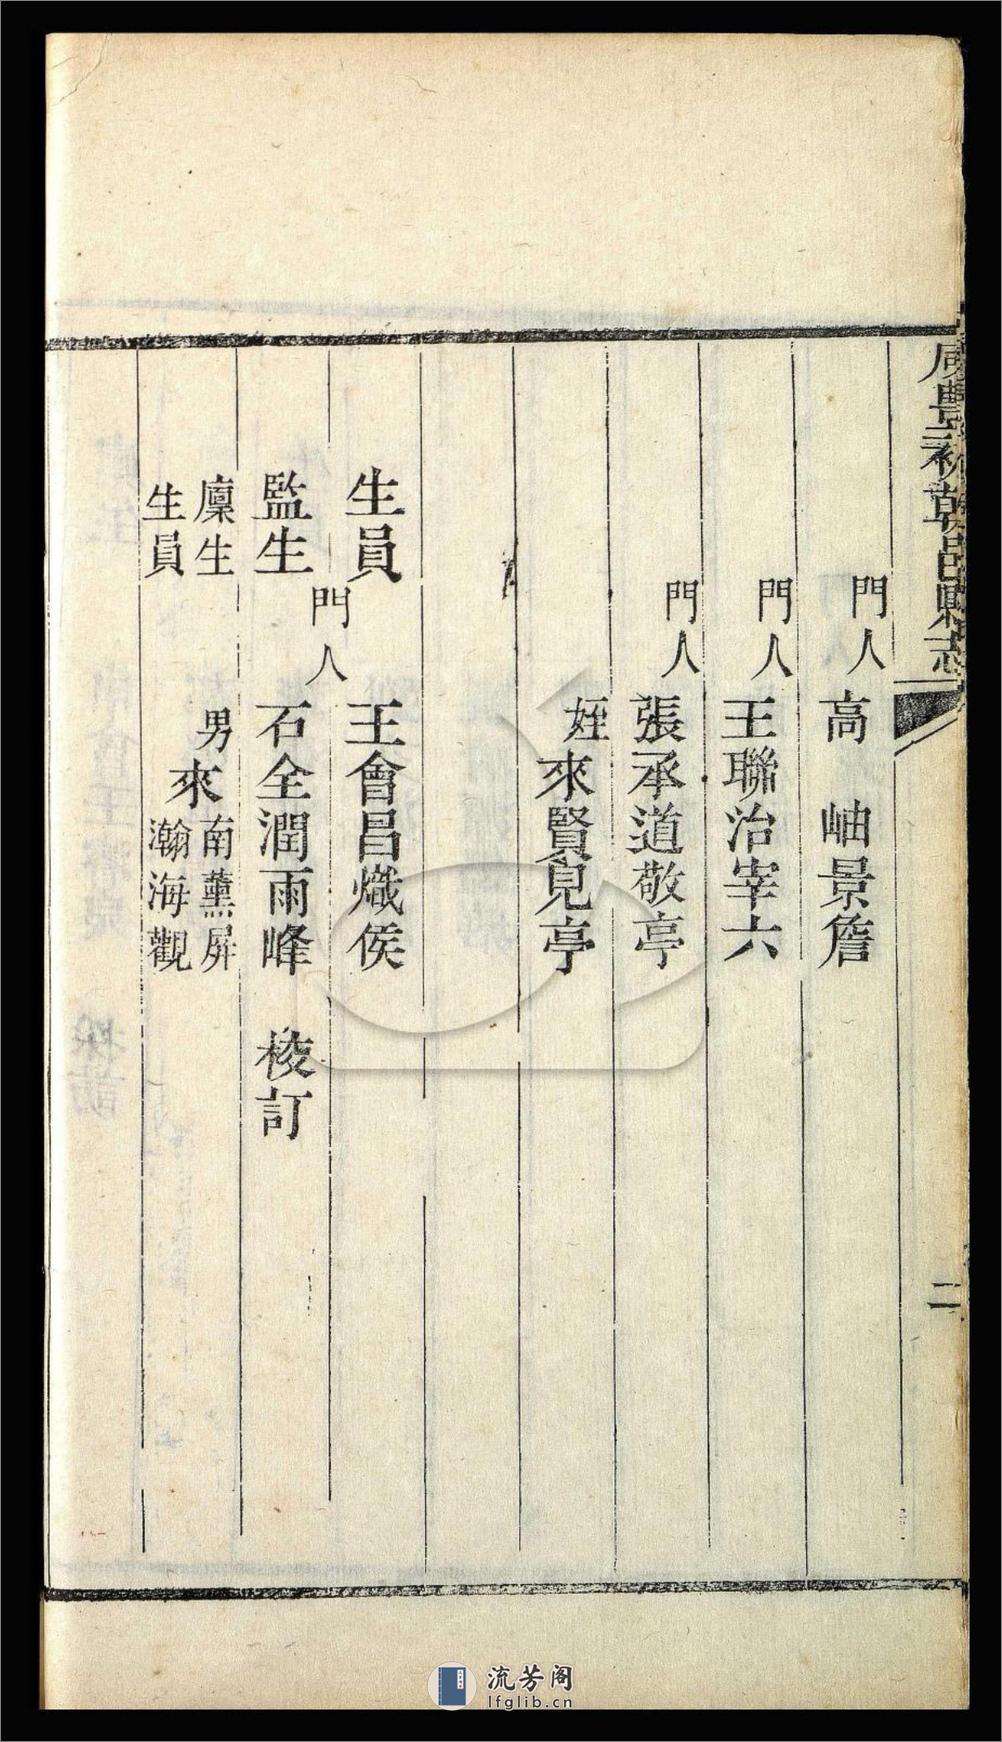 咸豐初朝邑縣志
二
門人 高 岫景詹
門人 王聯治宰六
門人 張承道敬亭
姪來賢皃亭
生員 王會昌熾侯
門人
監生 石全潤雨峰 校訂
廩生 男 南薰屏
來
生員 瀚海觀
流芳阁
lfglib.cn